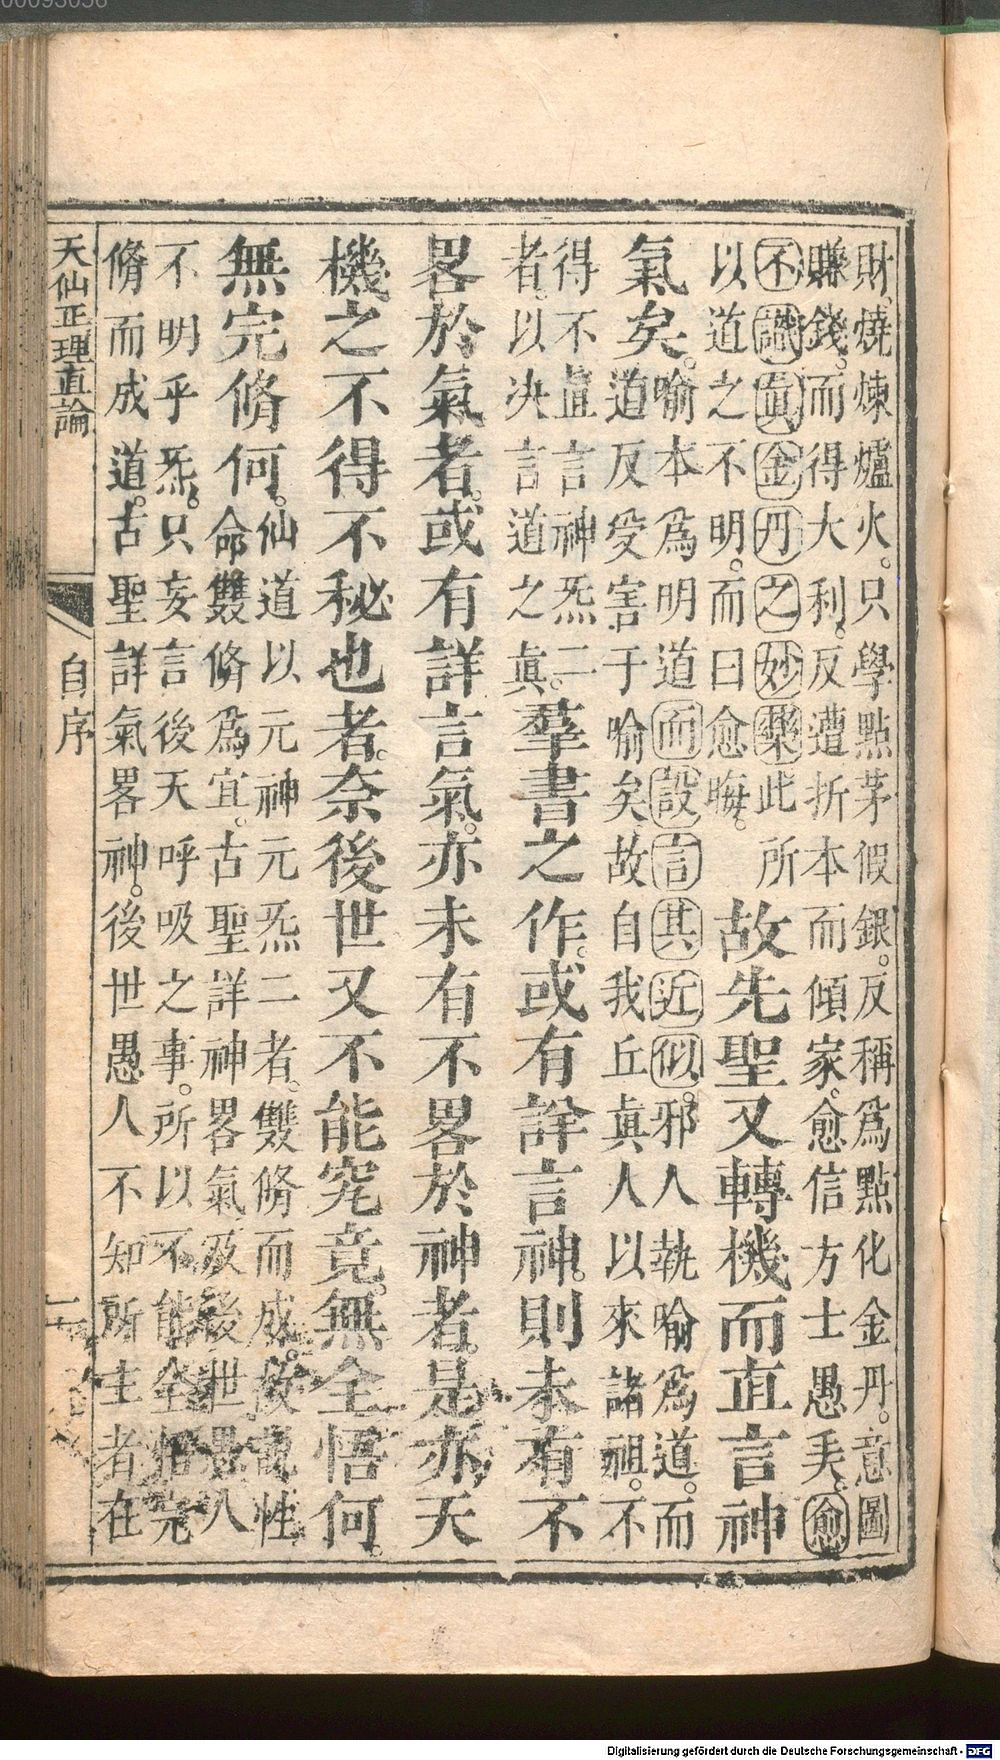 財燒煉爐火。只學點茅假銀。反稱爲點化金丹。意圖
賺錢。而得大利。反遭折本而傾家。愈信方士愚弄。愈
不識眞金丹之妙藥此所
以道之不明。而曰愈晦。
故先聖又轉機而直言神
氣矣。
喻本爲明道而設言其近似。邪人執喻爲道。而
道反受害于喻矣故自我丘眞人以來諸祖。不
得不直言神炁二
者。以决言道之眞。
羣書之作。或有詳言神。則未有不
畧於氣者。或有詳言氣。亦未有不畧於神者。是亦天
機之不得不秘也者。奈後世又不能究竟。無全悟何。
無完脩何。
仙道以元神元炁二者。雙脩而成。故說性
命雙脩爲宜。古聖詳神畧氣。及後世愚人
不明乎炁。只妄言後天呼吸之事。所以不能全悟完
脩而成道。古聖詳氣畧神。後世愚人不知所主者在
天仙正理直論
自序
00093056
Digitalisierung gefördert durch die Deutsche Forschungsgemeinschaft - DFG